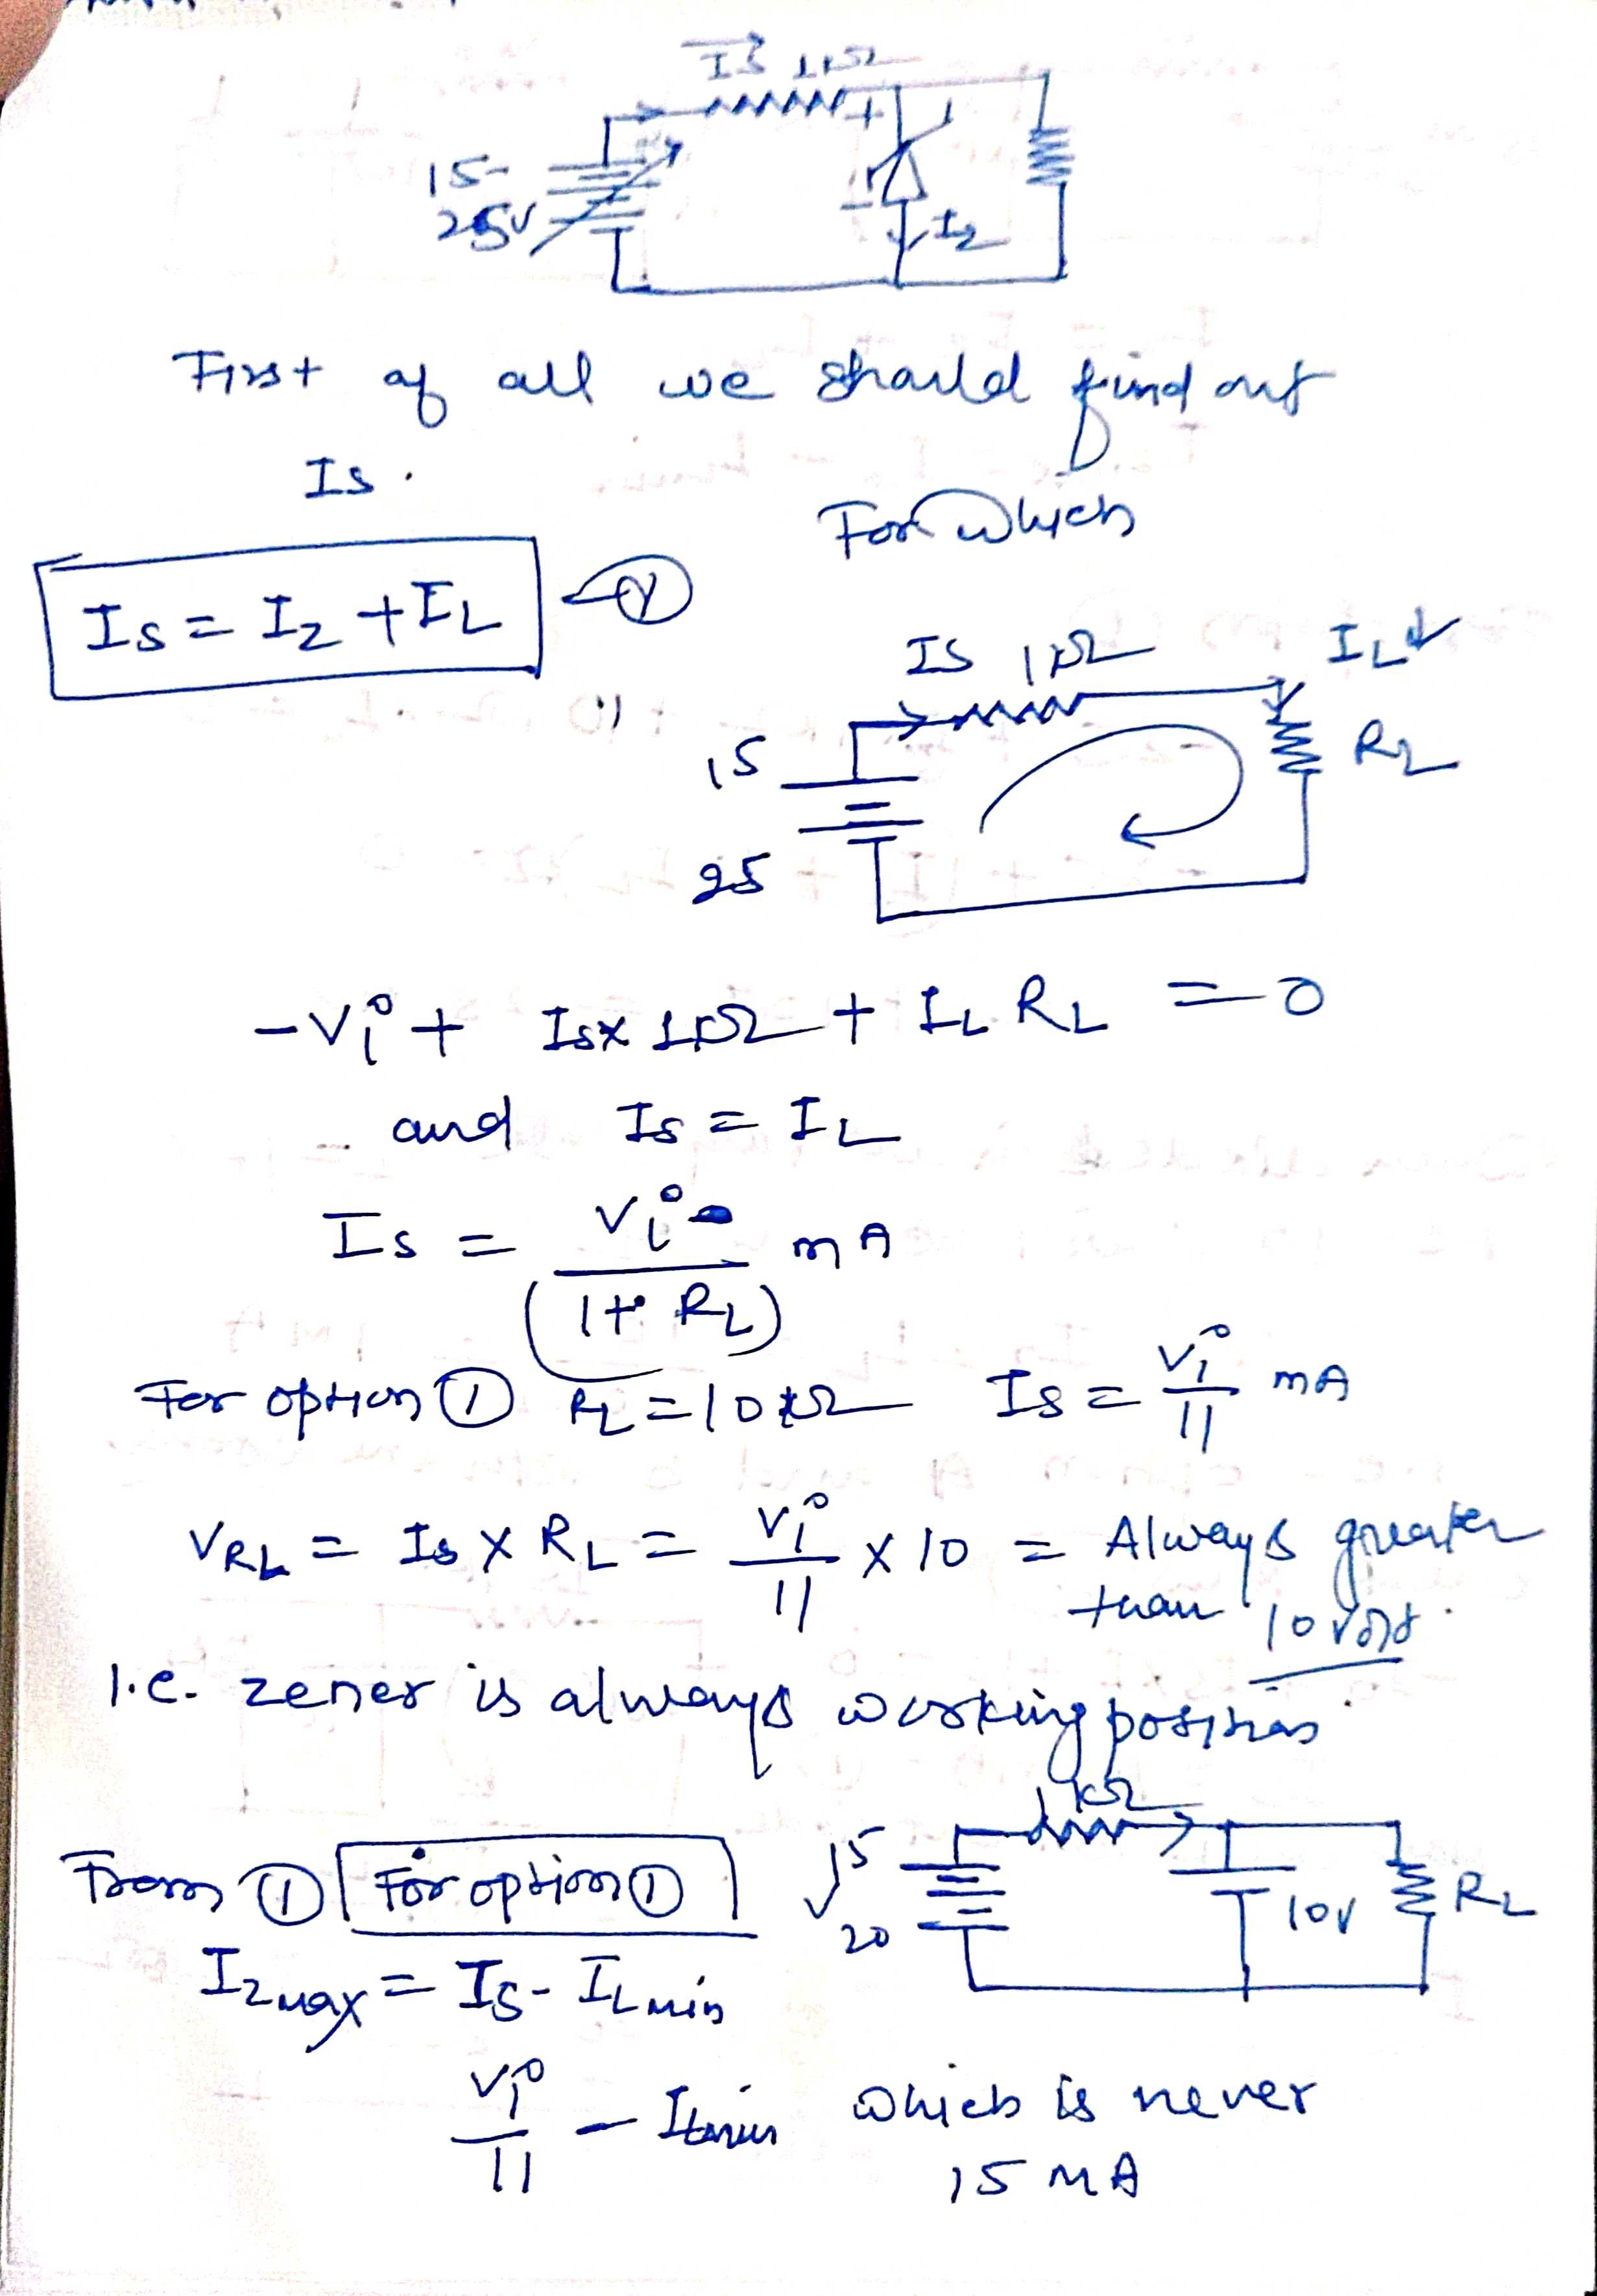 IS 1KΩ
+
15-
25V
-
IZ
First of all we should find out
IS.
For which
IS = IZ + IL ①
IS 1KΩ IL
15
RL
25
-Vi + IS x 1KΩ + IL RL = 0
and IS = IL
IS = Vi / (1 + RL) mA
For option ① RL = 10KΩ IS = Vi/11 mA
VRL = IS X RL = Vi/11 X 10 = Always greater
than 10 volt.
I.e. zener is always working position.
1KΩ
From ① For option ①
15
20
10V RL
IZmax = IS - ILmin
Vi/11 - ILmin which is never
15 mA